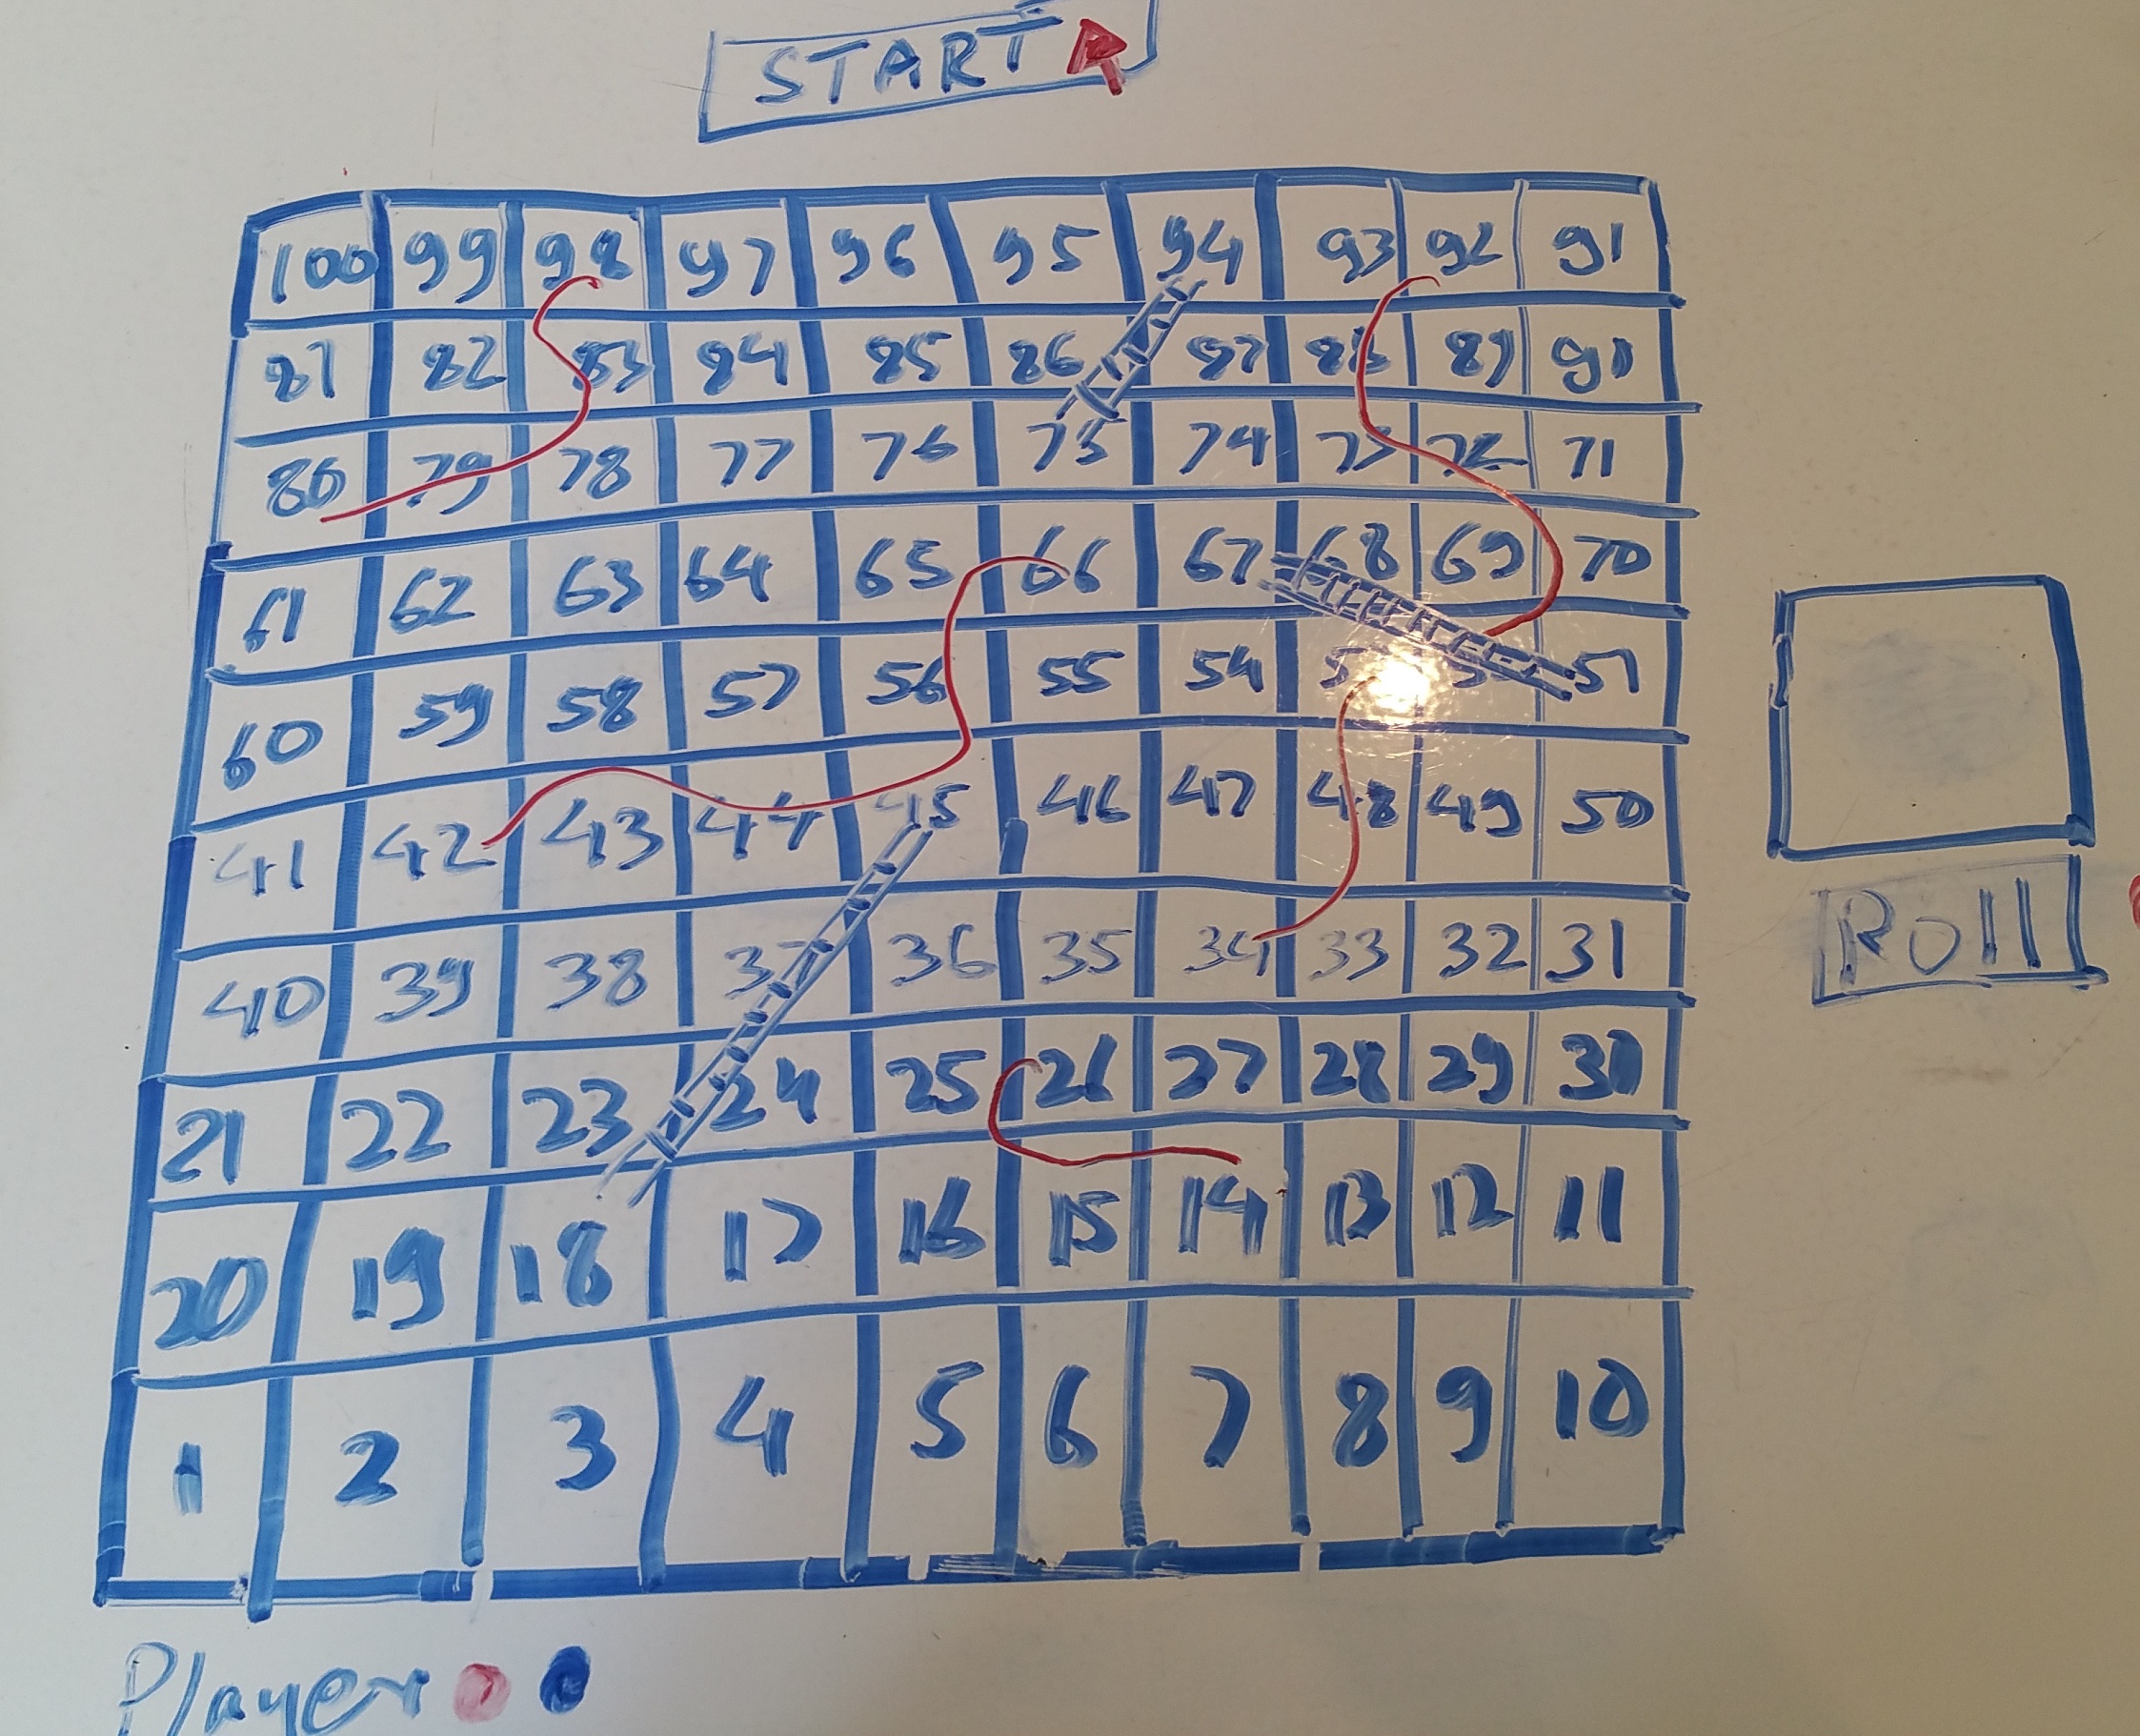 START
100 99 98 97 96 95 94 93 92 91
81 82 83 84 85 86 87 88 89 90
80 79 78 77 76 75 74 73 72 71
61 62 63 64 65 66 67 68 69 70
60 59 58 57 56 55 54 51
41 42 43 44 45 46 47 48 49 50
40 39 38 37 36 35 34 33 32 31
21 22 23 24 25 26 27 28 29 30
20 19 18 17 16 15 14 13 12 11
1 2 3 4 5 6 7 8 9 10
Roll
Player